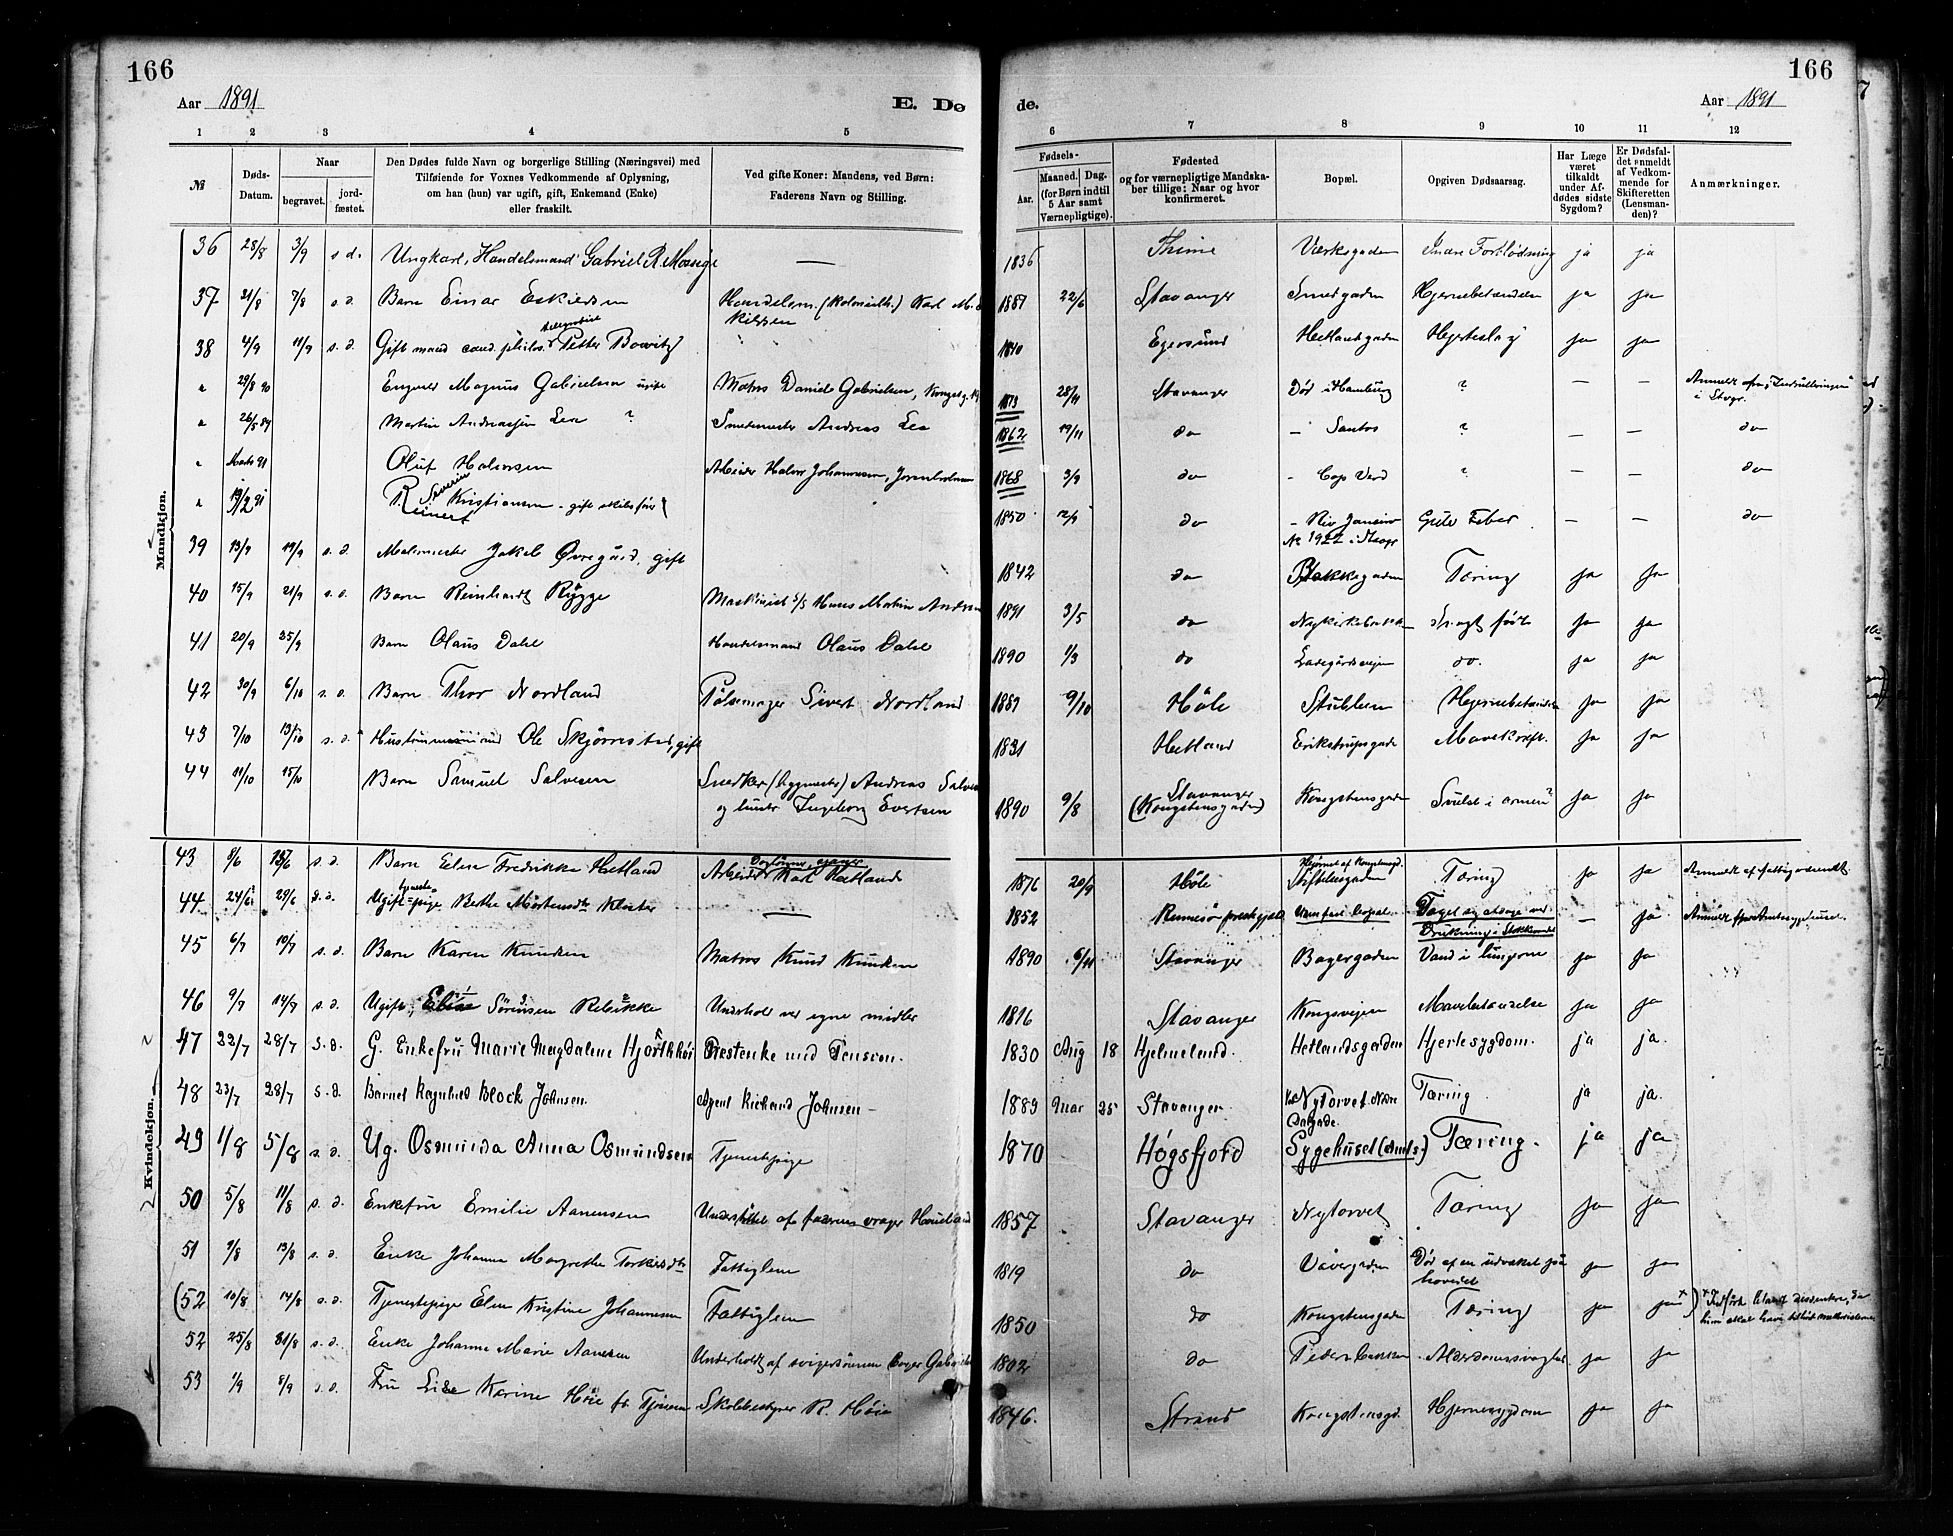 166
166
Aar 1891
E. Dø
de.
Aar 1891
1 2 3 4 5 6 7 8 9 10 11 12
№
Døds-Datum.
Naar
begravet.
jord-fæstet.
Den Dødes fulde Navn og borgerlige Stilling (Næringsvei) med
Tilføiende for Voxnes Vedkommende af Oplysning,
om han (hun) var ugift, gift, Enkemand (Enke)
eller fraskilt.
Ved gifte Koner: Mandens, ved Børn:
Faderens Navn og Stilling.
Fødsels-
Aar.
Maaned. Dag.
(for Børn indtil
5 Aar samt
Værnepligtige).
Fødested
og for værnepligtige Mandska-
ber tillige: Naar og hvor
konfirmeret.
Bopæl.
Opgiven Dødsaarsag.
Har Læge
været
tilkaldt
under Af-
dødes sidste
Sygdom?
Er Dødsfal-
det anmeldt
af Vedkom-
mende for
Skifteretten
(Lensman-
den)?
Anmærkninger.
Mandkjøn.
36 28/8 3/9 s d. Ungkarl, Handelsmand Gabriel R. Mossige — 1836 Thime Værksgaden Indre Forblødning ja ja
37 21/8 7/8 s. d. Barn Einar Eskildsen Handelsm. (Kolonialh.) Karl M. Es
kildsen 1889 22/6 Stavanger Smedgaden Hjernebetændelse ja ja
38 4/9 11/9 s. d. Gift mand cand. philos. telegrafist Petter Bowitz 1840 Egersund Hetlandsgaden Hjerteslag ja ja
" 29/8 90 Magnus Gabrielsen ugift Matros Daniel Gabrielsen, 1873 28/11 Stavanger Død i Hamburg ? — —
i Stvgr.
" 26/5 89 Martin Andreassen Lea ? Smedmester Andreas Lea 1862 19/11 do — Santos ? — — do
" Marts 91 Oluf Halvorsen Arbeider Halvor Johannesen, Jorenholmen 1868 3/9 do — Cap Verd ? do
" 19/2 91 Reinert Severin Kristiansen - gift skibsfør 1850 12/9 do — Rio Janeiro Gule Feber. — — do
39 13/9 19/9 s. d. Malermester Jakob Øvregård, gift 1842 do Bakkegaden Tæring ja ja
40 15/9 21/9 s. d. Barn Reinhardt Rygge Maskinist S/S Hans Martin Andersen 1891 3/5 do Nykirkebakken født ja ja
41 20/9 25/9 Barn Olaus Dahl Handelsmand Olaus Dahl 1890 1/3 do Ladegårdsveien do. ja ja
42 30/9 6/10 s. d. Barn Thor Nordland Pølsemager Sivert Nordland 1889 9/10 Høle Stubben Hjernebetændelse ja ja
43 7/10 13/10 s. d. Ole Skjørrestad, gift 1831 Hetland Erikstrupsgade Mavekræft. ja ja
44 11/10 15/10 Barn Samuel Salvesen Snedker (bygmester) Andreas Salvesen
og hustr Ingeborg Evertsen 1890 9/8 Stavanger
(Kongstensgaden) Kongstensgaden Svulst i armen? ja ja
Kvindekjøn.
43 8/6 13/6 s. d. Barn Elen Fredrikke Hetland Arbeider Karl Hetland 1876 20/9 Høle Hjørnet af Kongstensgd.
Stiftelsesgaden Tæring ja ja Anmeldt af fattigvæsenet
44 24/6 29/6 s. d. Ugift tjenestepige Berthe Mårtensdtr Kloster — 1852 Rennesø præstegjeld Uden fast bopæl Taget sig afdage ved
Drukning i Stokkavandet — ja Anmeldt fra Amtssygehuset.
45 6/7 10/7 s. d. Barn Karen Knudsen Matros Knud Knudsen 1890 6/11 Stavanger Bagergaden Vand i lungerne ja ja
46 9/7 14/7 s. d. Ugift, Eline Sørensen Rebekke Underhold ved egne midler 1816 Stavanger Kongsveien Mavebetændelse ja ja
47 22/7 28/7 s. d. G. Enkefru Marie Magdalene Hjorthhøi Prestenke med Pension. 1830 Aug 18 Hjelmeland. Hetlandsgaden Hjertesygdom. ja ja.
48 23/7 28/7 s. d. Barnet Ragnhild Block Johnsen. Agent Richard Johnsen - 1889 Mar 25 Stavanger. Nytorvet
Dalgade. Tæring. ja ja.
49 1/8 5/8 s. d. Ug. Osmunda Anna Osmundsen Tjenestepige 1870 Høgsfjord Sygehuset (Amts.) Tæring. ja ja
50 5/8 11/8 s. d. Enkefru Emilie Aanensen Understøttet af faderen vrager Haueland 1857 Stavanger Nytorvet Tæring ja ja
51 9/8 13/8 s. d. Enke Johanna Margrethe Torkildsdtr Fattiglem 1819 do Vævergaden Død af en udvækst på
hovedet ja ja
(52 10/8 14/8 s. d. Tjenestepige Elen Kristine Johannesen Fattiglem 1850 do Kongstensgaden Tæring ja ja x) x Indført blandt dissentere, da
hun skal have tilhørt methodisterne
52 25/8 31/8 s. d. Enke Johanne Marie Aanesen Underholdt af svigersønnen Bager Gabrielsen 1802 do Pedersbakken Alderdomssvaghed ja ja
53 1/9 8/9 s. d. Fru Karine Høie f. Tjøsem Skolebestyrer R. Høie 1846. Strand Kongstensgd. Hjernesygdom ja ja